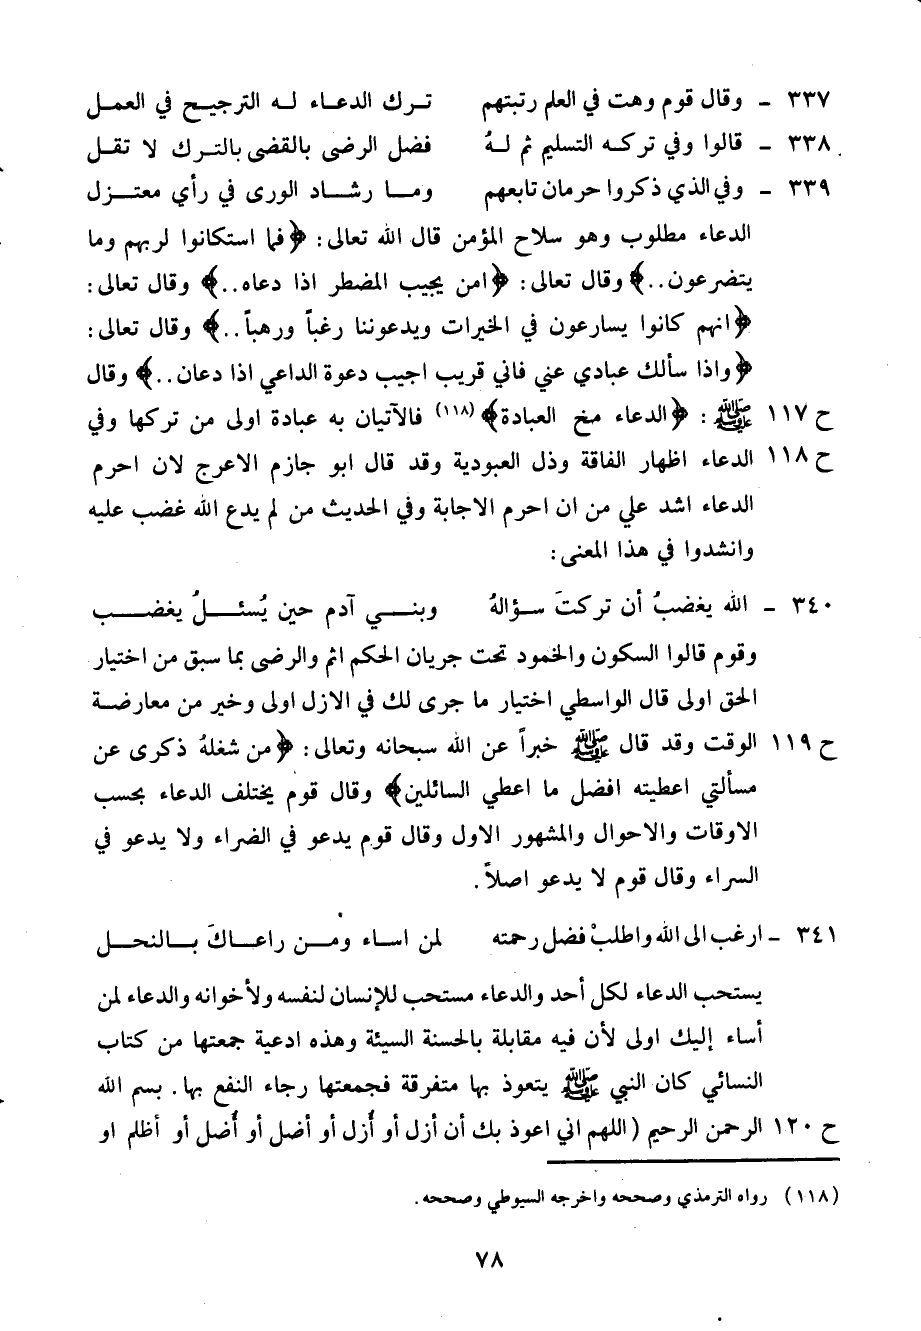 ٣٣٧ - وقال قوم وهت في العلم رتبتهم تـرك الدعـاء لـه الترجيـح في العمـل
٣٣٨ - قالوا وفي تركـه التسليم ثم لـهُ فضل الرضى بالقضى بالتـرك لا تقـل
٣٣٩ - وفي الذي ذكروا حرمان تابعهم ومـا رشـاد الورى في رأي معتـزل
الدعاء مطلوب وهو سلاح المؤمن قال الله تعالى: ﴿فما استكانوا لربهم وما
يتضرعون..﴾ وقال تعالى: ﴿امن يجيب المضطر اذا دعاه..﴾ وقال تعالى:
﴿انهم كانوا يسارعون في الخيرات ويدعوننا رغباً ورهباً..﴾ وقال تعالى:
﴿واذا سألك عبادي عني فاني قريب اجيب دعوة الداعي اذا دعان..﴾ وقال
ح ١١٧ ﷺ: ﴿الدعاء مخ العبادة﴾(١١٨) فالآتيان به عبادة اولى من تركها وفي
ح ١١٨ الدعاء اظهار الفاقة وذل العبودية وقد قال ابو جازم الاعرج لان احرم
الدعاء اشد علي من ان احرم الاجابة وفي الحديث من لم يدع الله غضب عليه
وانشدوا في هذا المعنى:
٣٤٠ - الله يغضبُ أن تركتَ سـؤالهُ وبنـي آدم حين يُسئـلُ يغضـب
وقوم قالوا السكون والخمود تحت جريان الحكم اثم والرضى بما سبق من اختيار
الحق اولى قال الواسطي اختيار ما جرى لك في الازل اولى وخير من معارضة
ح ١١٩ الوقت وقد قال ﷺ خبراً عن الله سبحانه وتعالى: ﴿من شغلهُ ذكرى عن
مسألتي اعطيته افضل ما اعطي السائلين﴾ وقال قوم يختلف الدعاء بحسب
الاوقات والاحوال والمشهور الاول وقال قوم يدعو في الضراء ولا يدعو في
السراء وقال قوم لا يدعو اصلاً.
٣٤١ - ارغب الى الله واطلبْ فضل رحمته لمن اساء ومـن راعـاكَ بـالنحـل
يستحب الدعاء لكل أحد والدعاء مستحب للإنسان لنفسه ولأخوانه والدعاء لمن
أساء إليك اولى لأن فيه مقابلة بالحسنة السيئة وهذه ادعية جمعتها من كتاب
النسائي كان النبي ﷺ يتعوذ بها متفرقة فجمعتها رجاء النفع بها. بسم الله
ح ١٢٠ الرحمن الرحيم (اللهم اني اعوذ بك أن أزل أو أُزل أو أضل أو أُضل أو أظلم او
(١١٨) رواه الترمذي وصححه واخرجه السيوطي وصححه.
٧٨